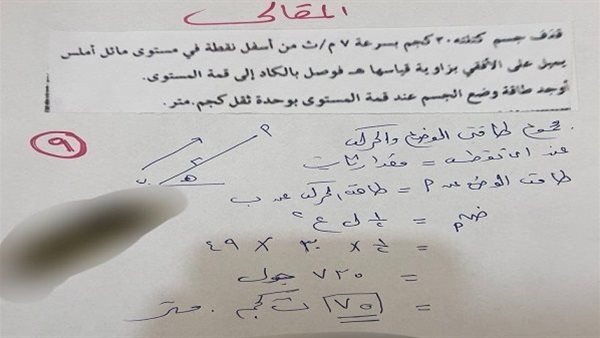 المقالى
قذف جسم كتلته ٣٠ كجم بسرعة ٧ م/ث من أسفل نقطة في مستوى مائل أملس
يميل على الأفقي بزاوية قياسها هـ فوصل بالكاد إلى قمة المستوى.
أوجد طاقة وضع الجسم عند قمة المستوى بوحدة ثقل كجم.متر.
٩
مجموع طاقتى الوضع والحركة
عند اى نقطة = مقدار ثابت
طاقة الوضع عند م = طاقة الحركة عند ب
ضم = ½ ل ع ٢
= ½ × ٣٠ × ٤٩
= ٧٣٥ جول
= ٧٥ ث كجم . متر
م
ف
هـ
ب